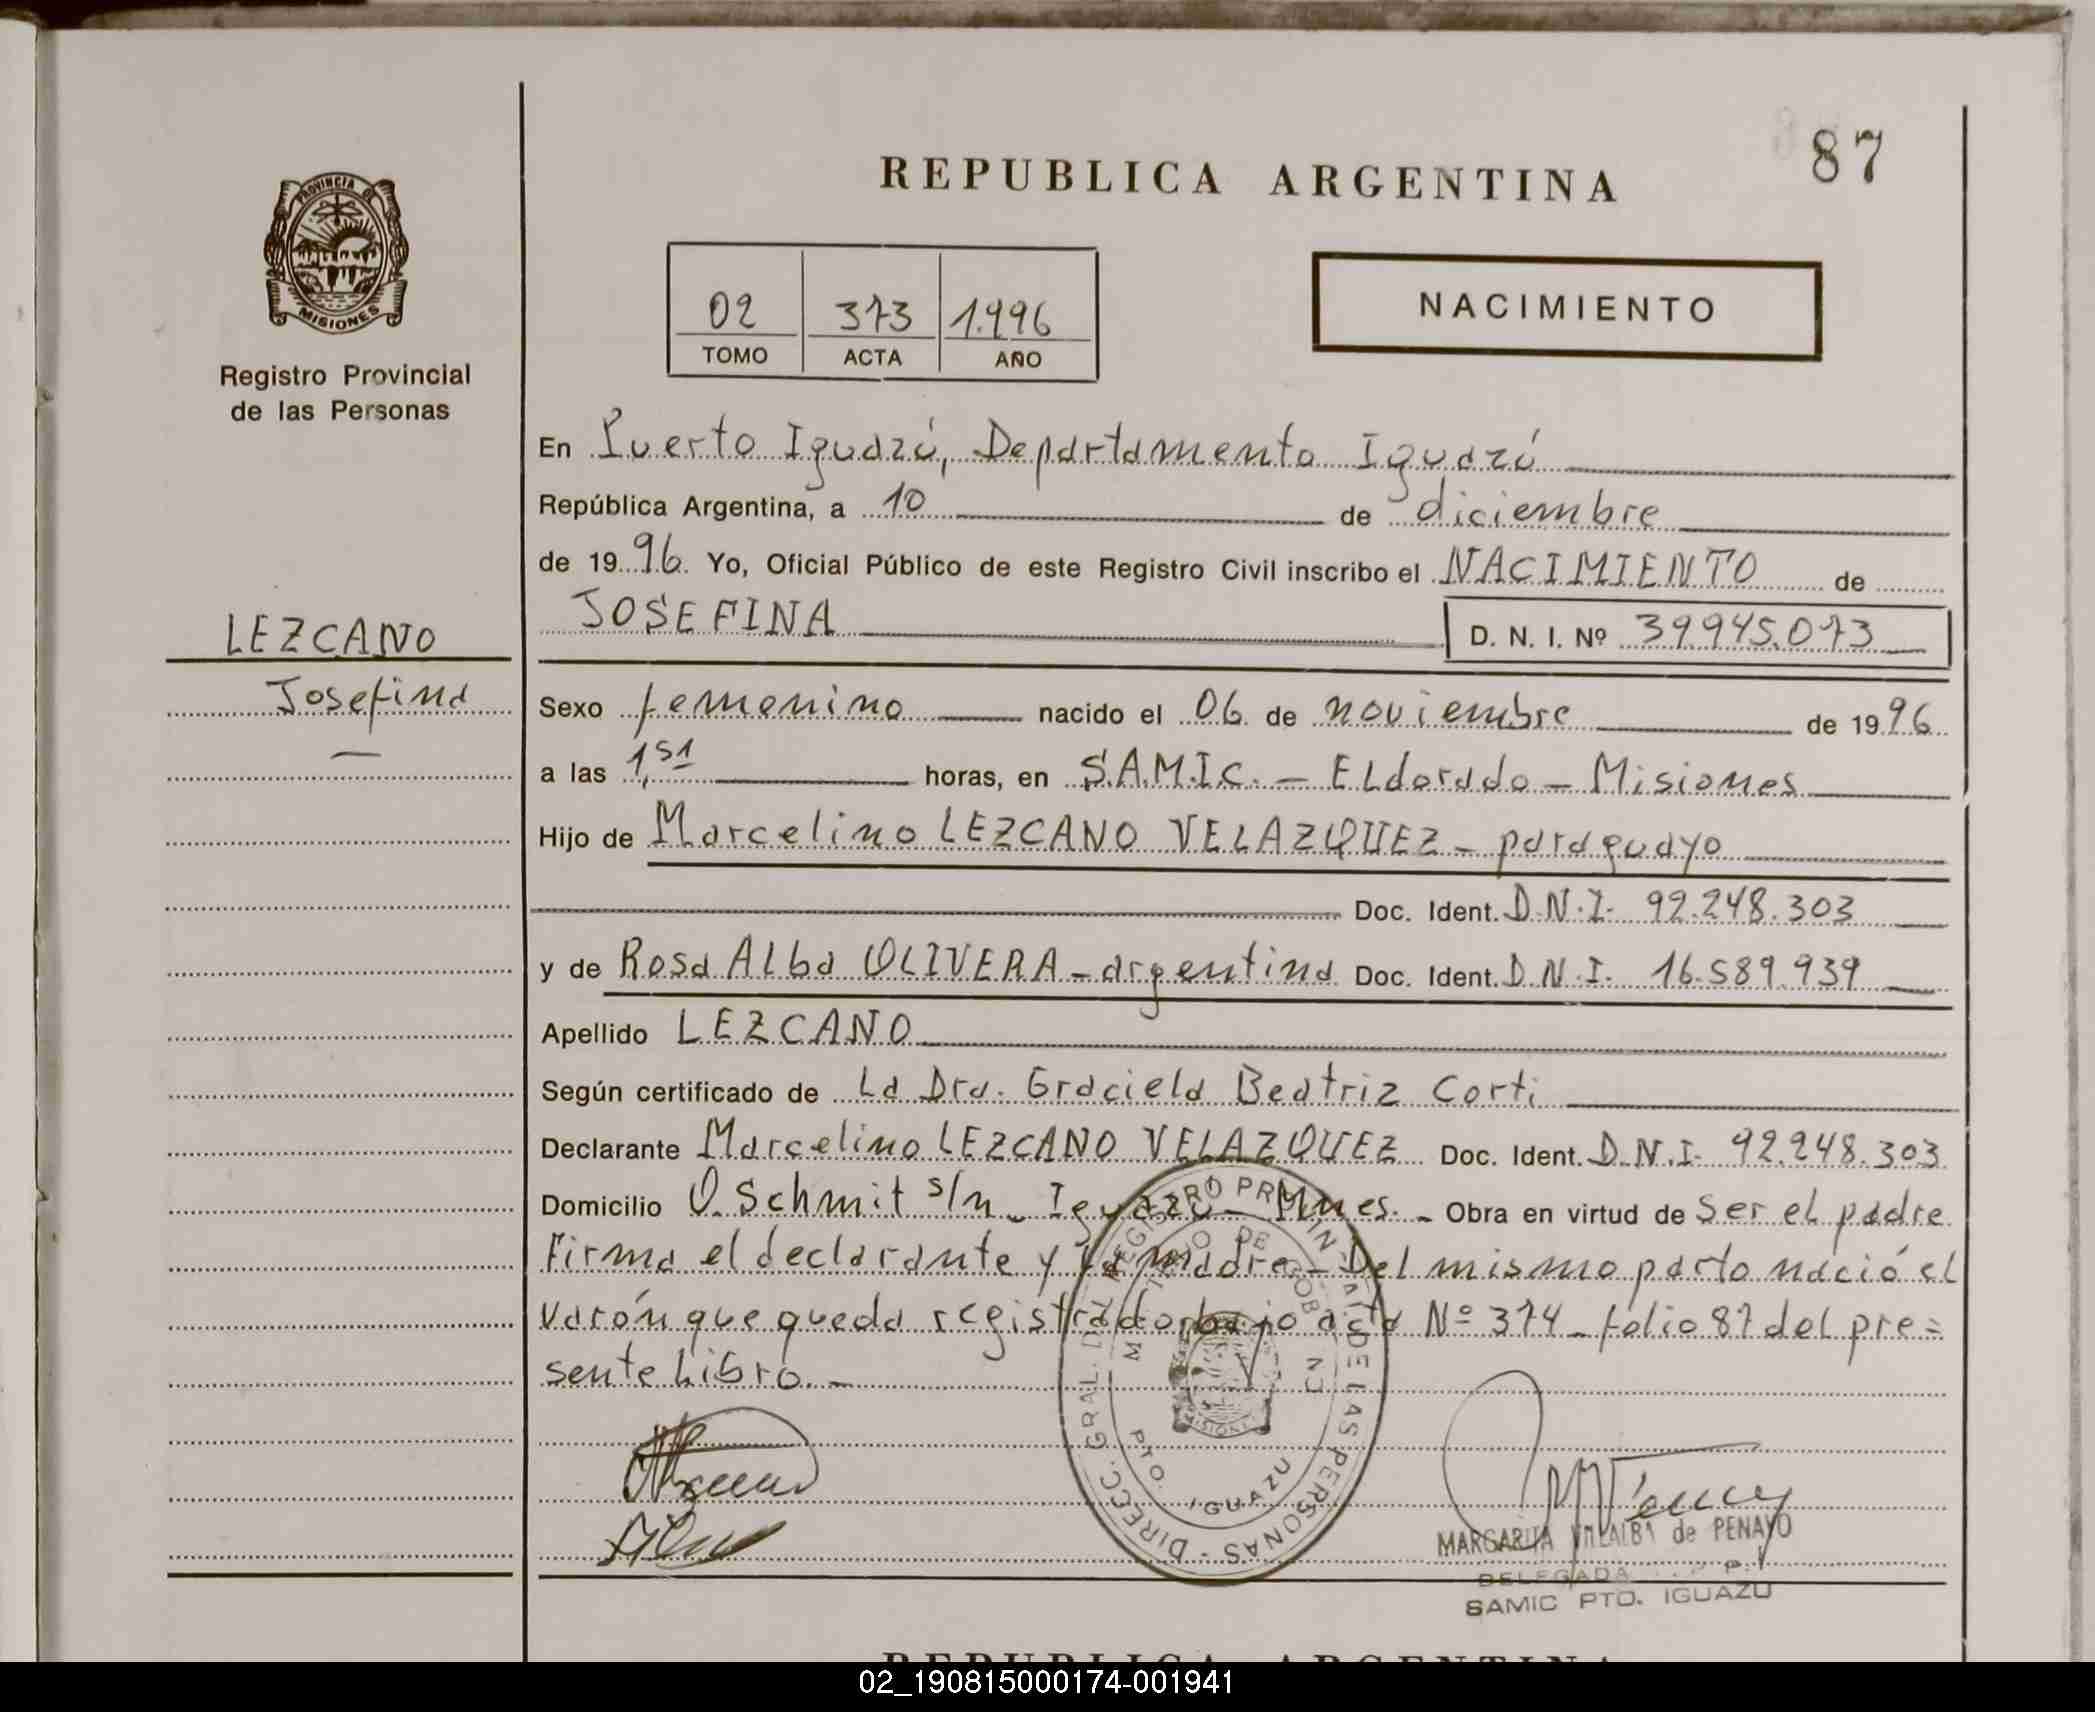 87
REPUBLICA ARGENTINA
PROVINCIA DE
MISIONES
Registro Provincial
de las Personas
02 373 1.996
TOMO ACTA AÑO
NACIMIENTO
En Puerto Iguazú, Departamento Iguazú
República Argentina, a 10 de diciembre
de 19 96. Yo, Oficial Público de este Registro Civil inscribo el NACIMIENTO de
JOSEFINA D. N. I. Nº 39.945.073
LEZCANO
Josefina
Sexo femenino nacido el 06 de noviembre de 19 96
a las 1,51 horas, en S.A.M.I.C. - ELdorado - Misiones
Hijo de Marcelino LEZCANO VELAZQUEZ - paraguayo
Doc. Ident. D.N.I. 92.248.303
y de Rosa ALba OLIVERA - argentina Doc. Ident. D.N.I. 16.589.939
Apellido LEZCANO
Según certificado de La Dra. Graciela Beatriz Corti
Declarante Marcelino LEZCANO VELAZQUEZ Doc. Ident. D.N.I. 92.248.303
Domicilio O. Schmit s/n - Iguazú - Mnes. - Obra en virtud de ser el padre
Firma el declarante y la madre - Del mismo parto nació el
varón que queda registrado bajo acta Nº 374 - folio 87 del pre=
sente Libro. -
DIRECC. GRAL. DEL REGISTRO PROVINCIAL DE LAS PERSONAS
PTO. IGUAZU
MARGARITA VILLALBA de PENAYO
DELEGADA
SAMIC PTO. IGUAZU
REPUBLICA ARGENTINA
02_190815000174-001941